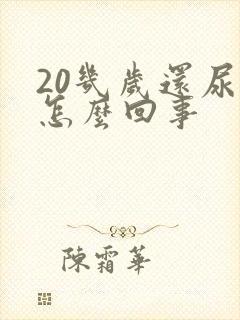 20幾歲還尿
怎麼回事
陳霜華